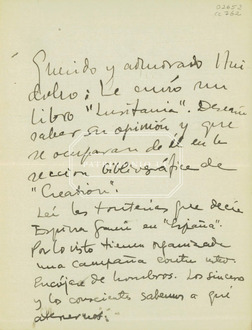 02652
Querido y admirado Hui
dobro: Le envío un
libro "Lusitania". Desearía
saber su opinión y que
se ocuparan de él en la
sección bibliográfica de
"Creación".
Leí las tonterías que decía
Espina García en "España".
Por lo visto tienen organizada
una campaña contra
Encójase de hombros. Los sinceros
y los conscientes sabemos a qué
atenernos.